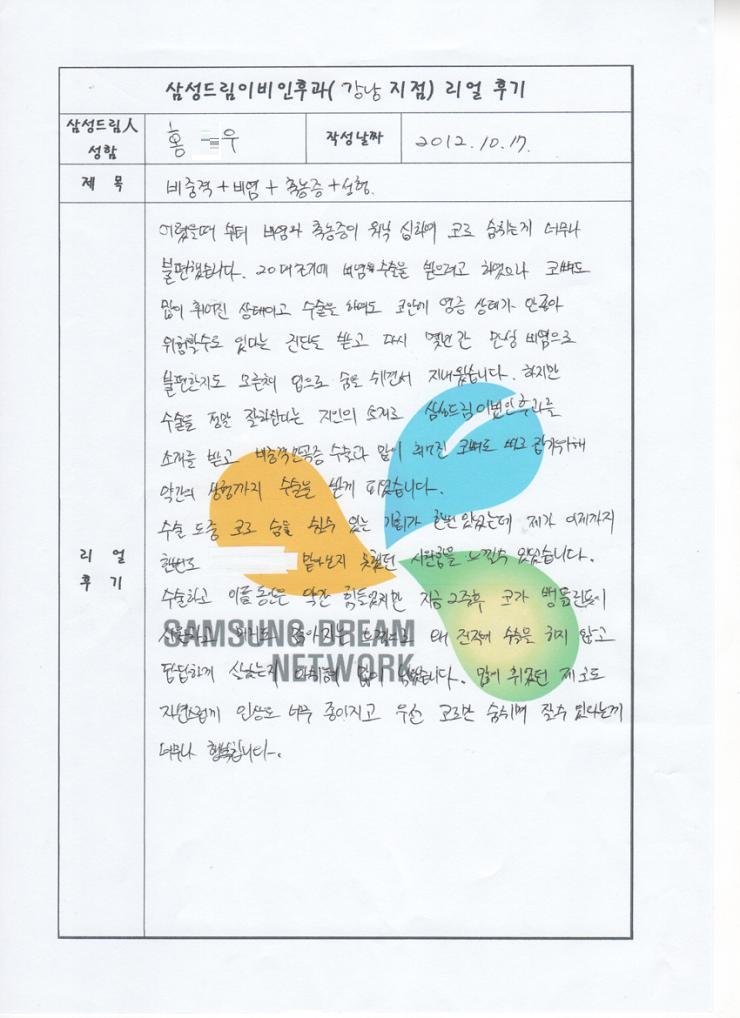 삼성드림이비인후과( 강남 지점) 리얼 후기
삼성드림人
성함
홍 우
작성날짜
2012.10.17.
제 목
비중격+비염+축농증+성형.
리 얼
후 기
어렸을때 부터 비염과 축농증이 워낙 심하여 코로 숨쉬는게 너무나
불편했습니다. 20대초기에 비염 수술을 받으려고 하였으나 코뼈도
많이 휘어진 상태이고 수술을 하여도 코안에 염증 상태가 안좋아
위험할수도 있다는 진단을 받고 다시 몇년간 만성 비염으로
불편한지도 모른체 입으로 숨을 쉬면서 지내왔습니다. 하지만
수술을 정말 잘하신다는 지인의 소개로 삼성드림이비인후과를
소개를 받고 비중격만곡증 수술과 많이 휘어진 코뼈도 바로 잡기위해
약간의 성형까지 수술을 받게 되었습니다.
수술 도중 코로 숨을 쉴수 있는 기회가 한번 있었는데 제가 이제까지
한번도 맡아보지 못했던 시원함을 느낄수 있었습니다.
수술하고 이틀동안은 약간 힘들었지만 지금 2주후 코가 뻥뚫린듯이
시원하고 좋아지는 느낌으로 왜 진작에 수술을 하지 않고
답답하게 살았는지 많이 습니다. 많이 휘었던 제코도
자연스럽게 인상도 너무 좋아지고 우선 코로만 숨쉬며 잘수 있다는게
너무나 행복합니다~.
SAMSUNG DREAM
NETWORK